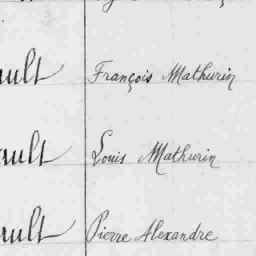 ault François Mathurin
ault Louis Mathurin
ault Pierre Alexandre